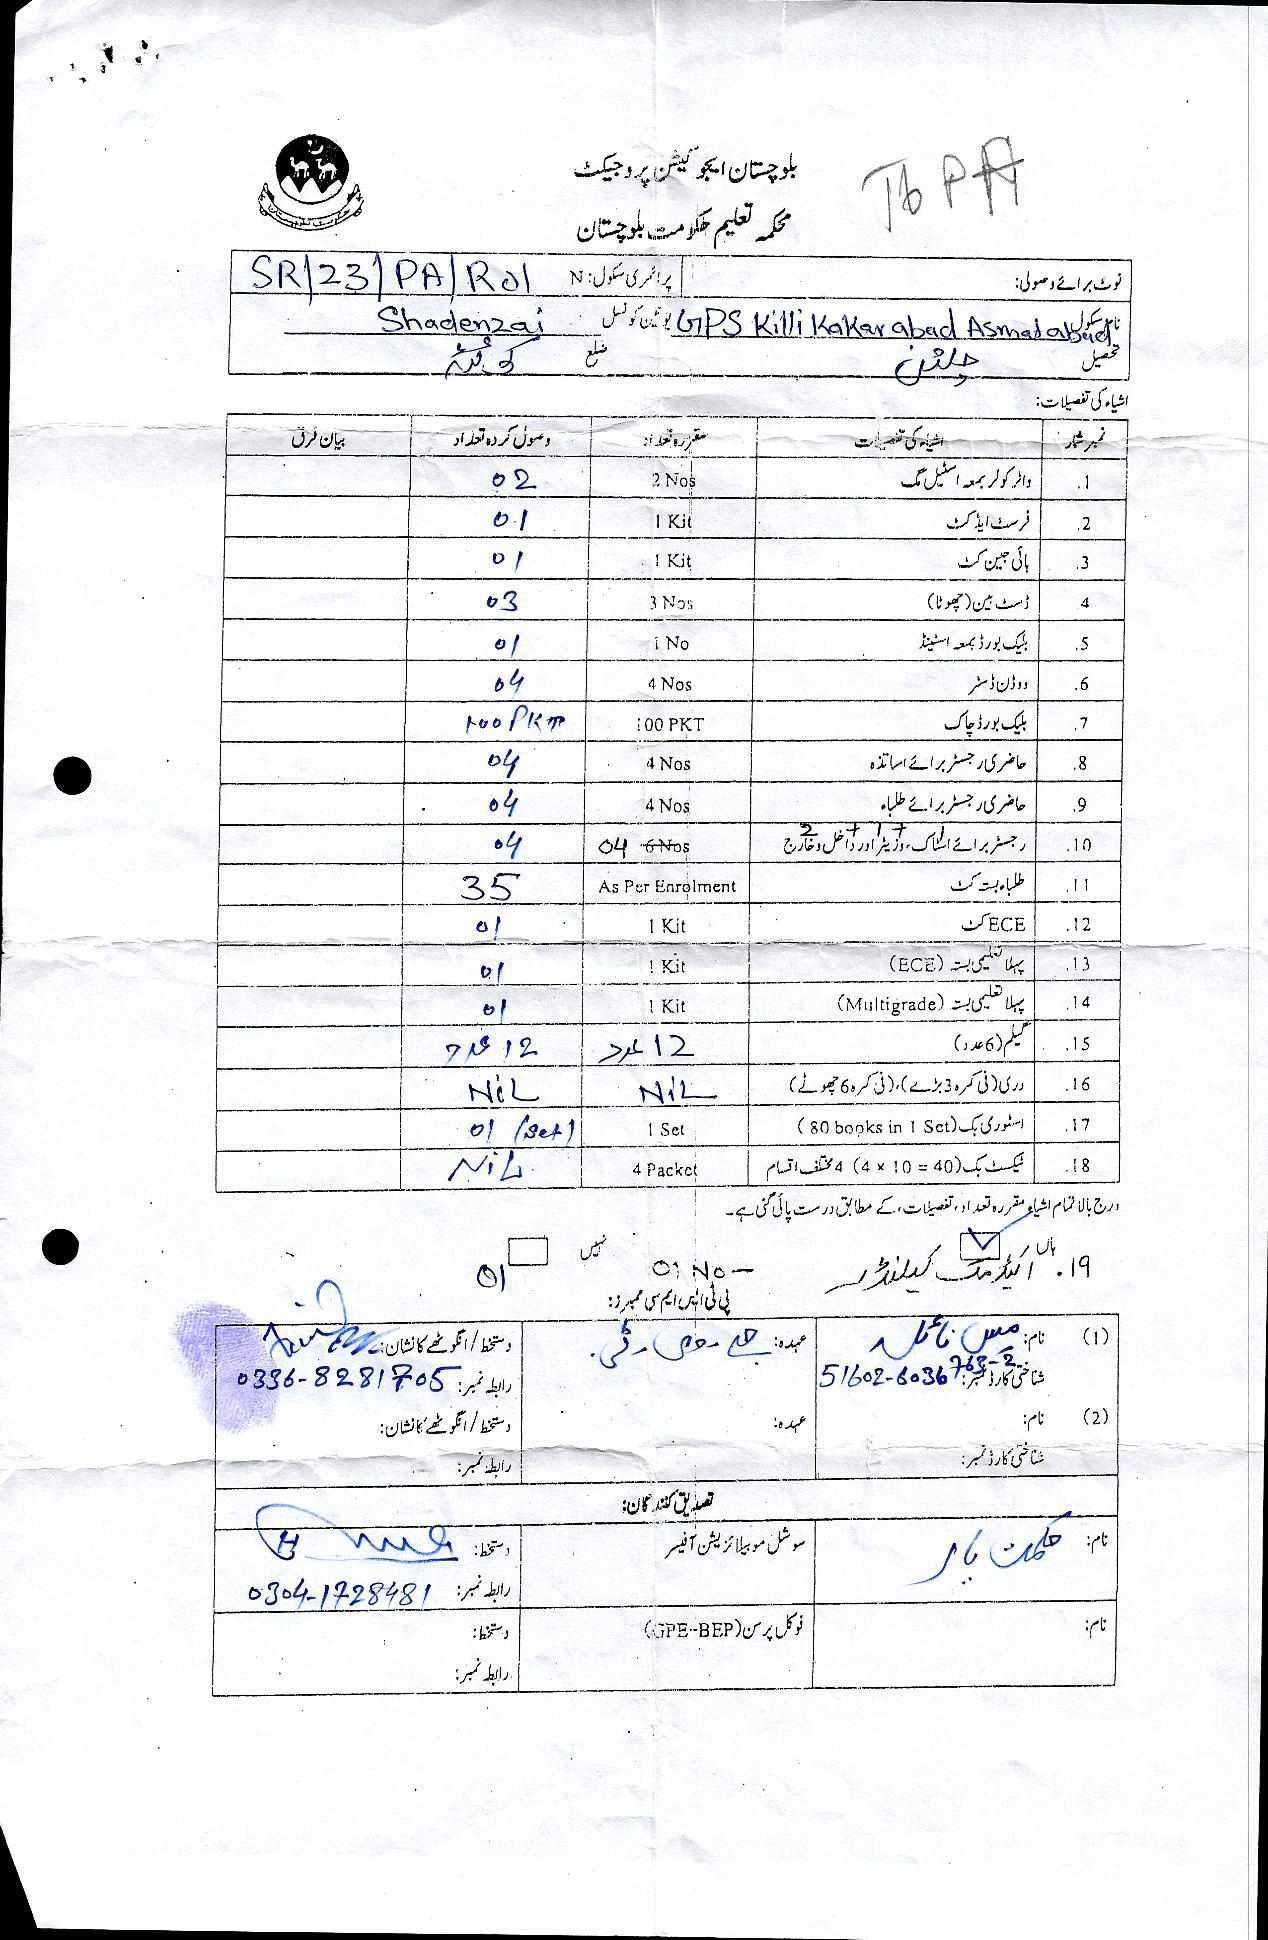 بلوچستان ایجوکیشن پروجیکٹ
محکمہ تعلیم حکومت بلوچستان
نوٹ برائے وصولی: پرائمری سکول: N SR/23/PA/R01
نام سکول GPS Killi Kakarabad Asmatabad یونین کونسل Shadenzai
تحصیل چلتن ضلع کوئٹہ
اشیاء کی تفصیلات:
نمبر شمار اشیاء کی تفصیلات مقررہ تعداد وصول کردہ تعداد بیان فرق
1. واٹر کولر بمعہ اسٹیل مگ 2 Nos 02
2. فرسٹ ایڈ کٹ 1 Kit 01
3. ہائی جین کٹ 1 Kit 01
4 ڈسٹ بین (چھوٹا) 3 Nos 03
5. بلیک بورڈ بمعہ اسٹینڈ 1 No 01
6. ووڈن ڈسٹر 4 Nos 04
7. بلیک بورڈ چاک 100 PKT 100 PKT
8. حاضری رجسٹر برائے اساتذہ 4 Nos 04
9. حاضری رجسٹر برائے طلباء 4 Nos 04
10. رجسٹر برائے اسٹاک، وزیٹر اور داخل و خارج 2+1+1 6 Nos 04 04
11. طلباء بستہ کٹ As Per Enrolment 35
12. ECE کٹ 1 Kit 01
13. پہلا تعلیمی بستہ (ECE) 1 Kit 01
14. پہلا تعلیمی بستہ (Multigrade) 1 Kit 01
15. گلیم (6 عدد) 12 عدد 12 عدد
16. دری (فی کمرہ 3 بڑے)، (فی کمرہ 6 چھوٹے) NiL NiL
17. اسٹوری بک (80 books in 1 Set) 1 Set 01 (Set)
18. ٹیکسٹ بک (4 x 10 = 40) 4 مختلف اقسام 4 Packet NiL
درج بالا تمام اشیاء مقررہ تعداد، تفصیلات، کے مطابق درست پائی گئی ہے۔
ہاں نہیں
۱۹. اکیڈمک کیلنڈر 01 No 01
پی ٹی ایس ایم سی ممبرز:
(1) نام: مس نائلہ عہدہ: جے وی ٹی دستخط / انگوٹھے کا نشان:
شناختی کارڈ نمبر: 51602-6036763-2 رابطہ نمبر: 0336-8281705
(2) نام: عہدہ: دستخط / انگوٹھے کا نشان:
شناختی کارڈ نمبر: رابطہ نمبر:
تصدیق کنندگان:
نام: حکمت یار سوشل موبیلائزیشن آفیسر دستخط:
رابطہ نمبر: 0304-1728481
نام: فوکل پرسن (GPE-BEP) دستخط:
رابطہ نمبر: